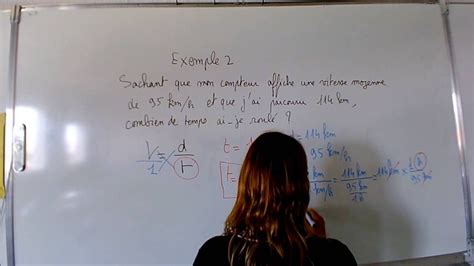 Exemple 2
Sachant que mon compteur affiche une vitesse moyenne
de 95 km/h et que j'ai parcouru 114 km,
combien de temps ai-je roulé ?
V/1 = d/t
t =
t =
t = 114 km / 95 km/h
km / km/h = 114 km / (95 km / 1 h) = 114 km × 1 h / 95 km